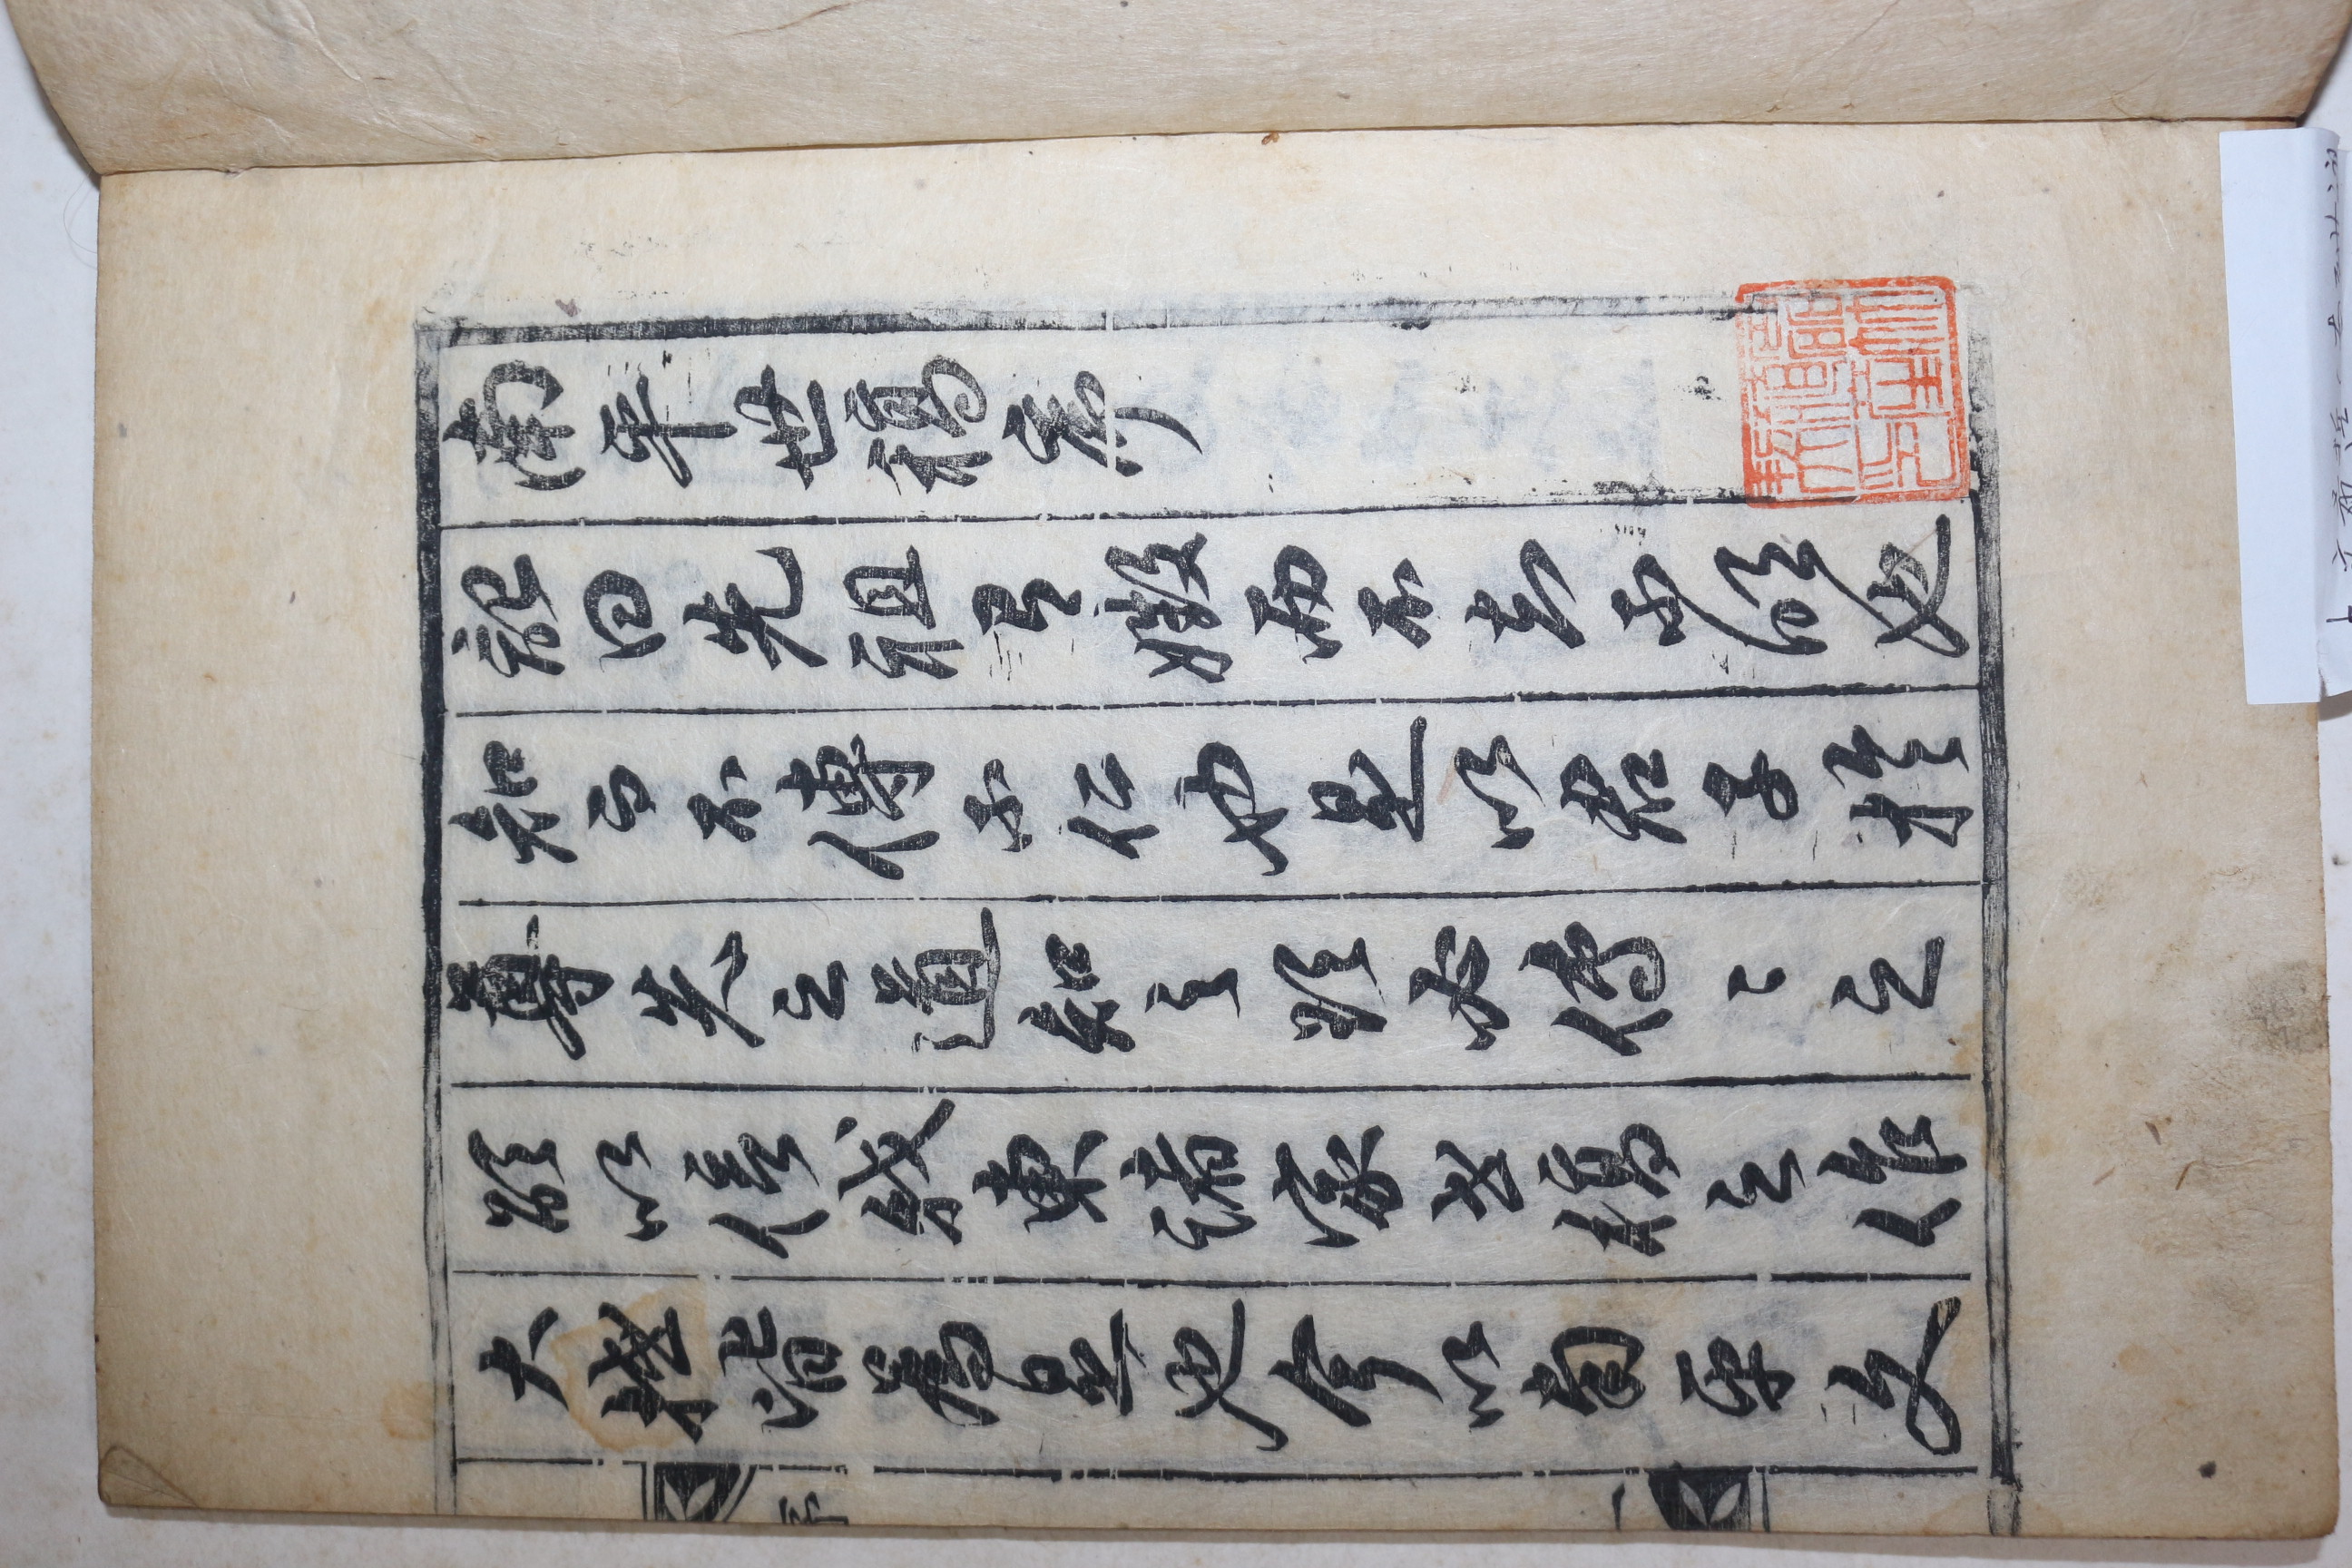 南平世稿序
記曰先祖有媺而不知不明也
知而不傳不仁也是以君子於
尊先之道知之欲必傳〻之
欲以信我東諸家世稿之作
大抵皆爲是也今以南平文
序
一